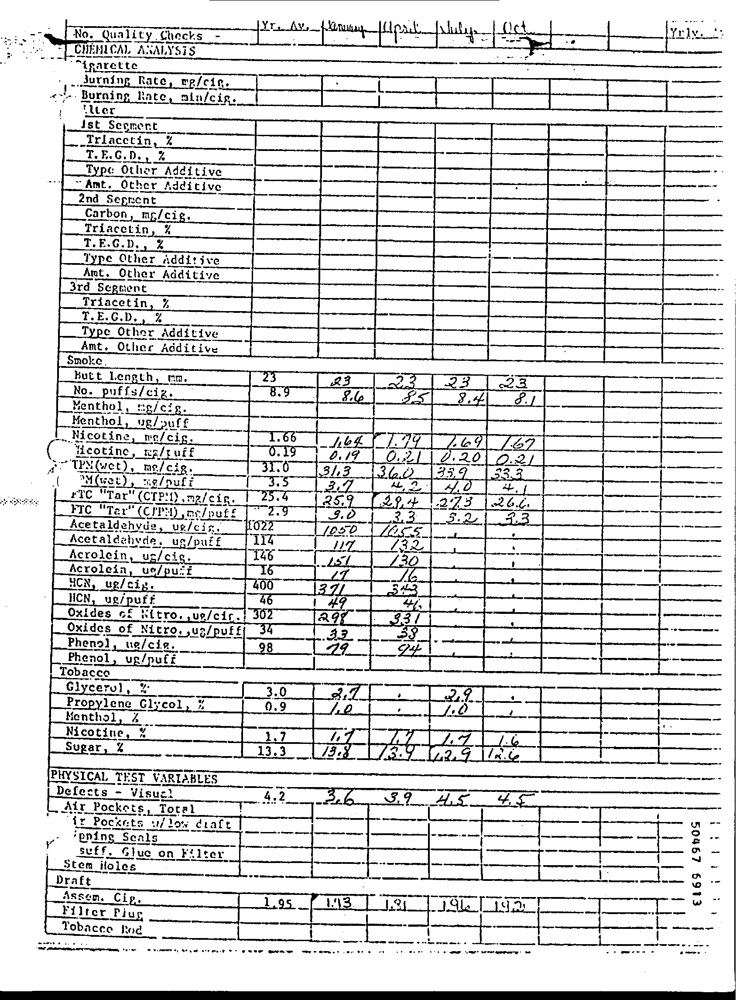 No. Quality Checks - Yr. Av. January April July Oct Yrly.
CHEMICAL ANALYSIS
igarette
Burning Rate, mg/cig.
Burning Rate, min/cig.
lter
1st Segment
Triacetin, %
T.E.G.D., %
Type Other Additive
Amt. Other Additive
2nd Segment
Carbon, mg/cig.
Triacetin, %
T.E.G.D., %
Type Other Additive
Amt. Other Additive
3rd Segment
Triacetin, %
T.E.G.D., %
Type Other Additive
Amt. Other Additive
Smoke
Butt Length, mm. 23 23 23 23 23
No. puffs/cig. 8.9 8.6 8.5 8.4 8.1
Menthol, mg/cig.
Menthol, ug/puff
Nicotine, mg/cig. 1.66 1.64 1.79 1.69 1.67
Nicotine, mg/puff 0.19 0.19 0.21 0.20 0.21
TPM(wet), mg/cig. 31.0 31.3 36.0 33.9 33.3
PM(wet), mg/puff 3.5 3.7 4.2 4.0 4.1
FTC "Tar"(CTPM), mg/cig. 25.4 25.9 29.4 27.3 26.6
FTC "Tar"(CTPM), mg/puff 2.9 3.0 3.3 3.2 3.3
Acetaldehyde, ug/cig. 1022 1050 1055
Acetaldehyde, ug/puff 114 117 132
Acrolein, ug/cig. 146 151 130
Acrolein, ug/puff 16 17 16
HCN, ug/cig. 400 371 343
HCN, ug/puff 46 49 46
Oxides of Nitro., ug/cig. 302 298 331
Oxides of Nitro., ug/puff 34 33 38
Phenol, ug/cig. 98 79 94
Phenol, ug/puff
Tobacco
Glycerol, % 3.0 2.7 . 2.9 .
Propylene Glycol, % 0.9 1.0 . 1.0 .
Menthol, %
Nicotine, % 1.7 1.7 1.7 1.7 1.6
Sugar, % 13.3 13.8 13.9 12.9 12.6
PHYSICAL TEST VARIABLES
Defects - Visual 4.2 3.6 3.9 4.5 4.5
Air Pockets, Total
ir Pockets w/low draft
pping Seals
suff. Glue on Filter
Stem Holes
Draft
Assem. Cig. 1.95 1.93 1.91 1.96 1.92
Filter Plug
Tobacco Rod
50467 6913